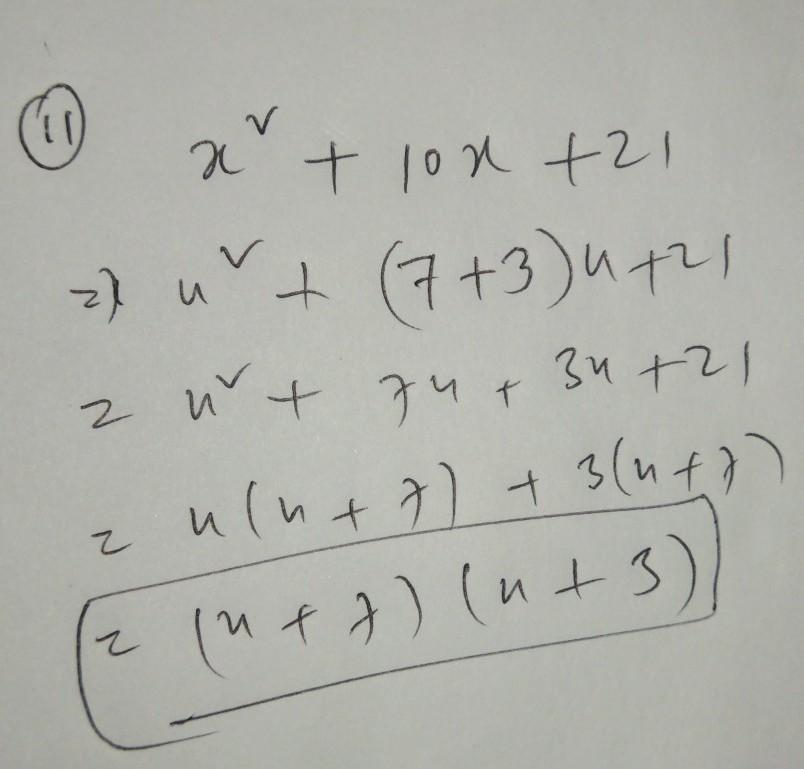 (11) x² + 10x + 21
=> x² + (7+3)x + 21
= x² + 7x + 3x + 21
= x(x + 7) + 3(x + 7)
= (x + 7) (x + 3)